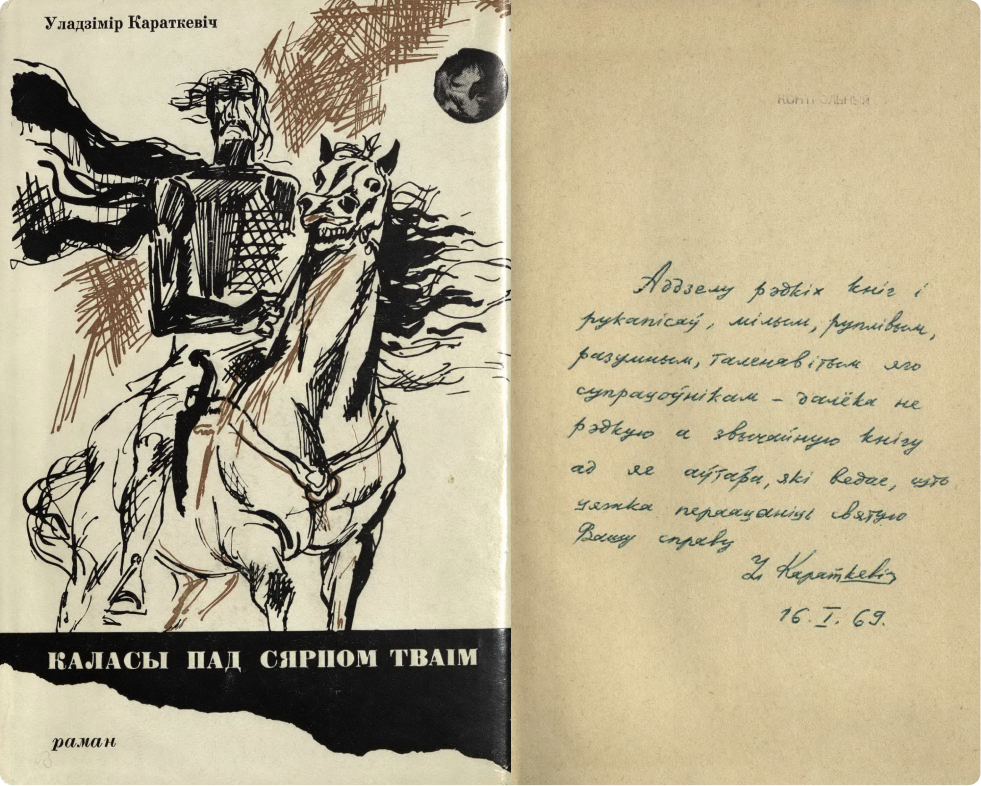 Уладзімір Караткевіч
КАЛАСЫ ПАД СЯРПОМ ТВАІМ
раман
КОНТРОЛЬНЫЙ
Аддзелу рэдкіх кніг і
рукапісаў, мілым, руплівым,
разумным, таленавітым яго
супрацоўнікам – далёка не
рэдкую а звычайную кнігу
ад яе аўтара, які ведае, што
цяжка пераацаніць святую
Вашу справу
У Караткевіч
16. I. 69.